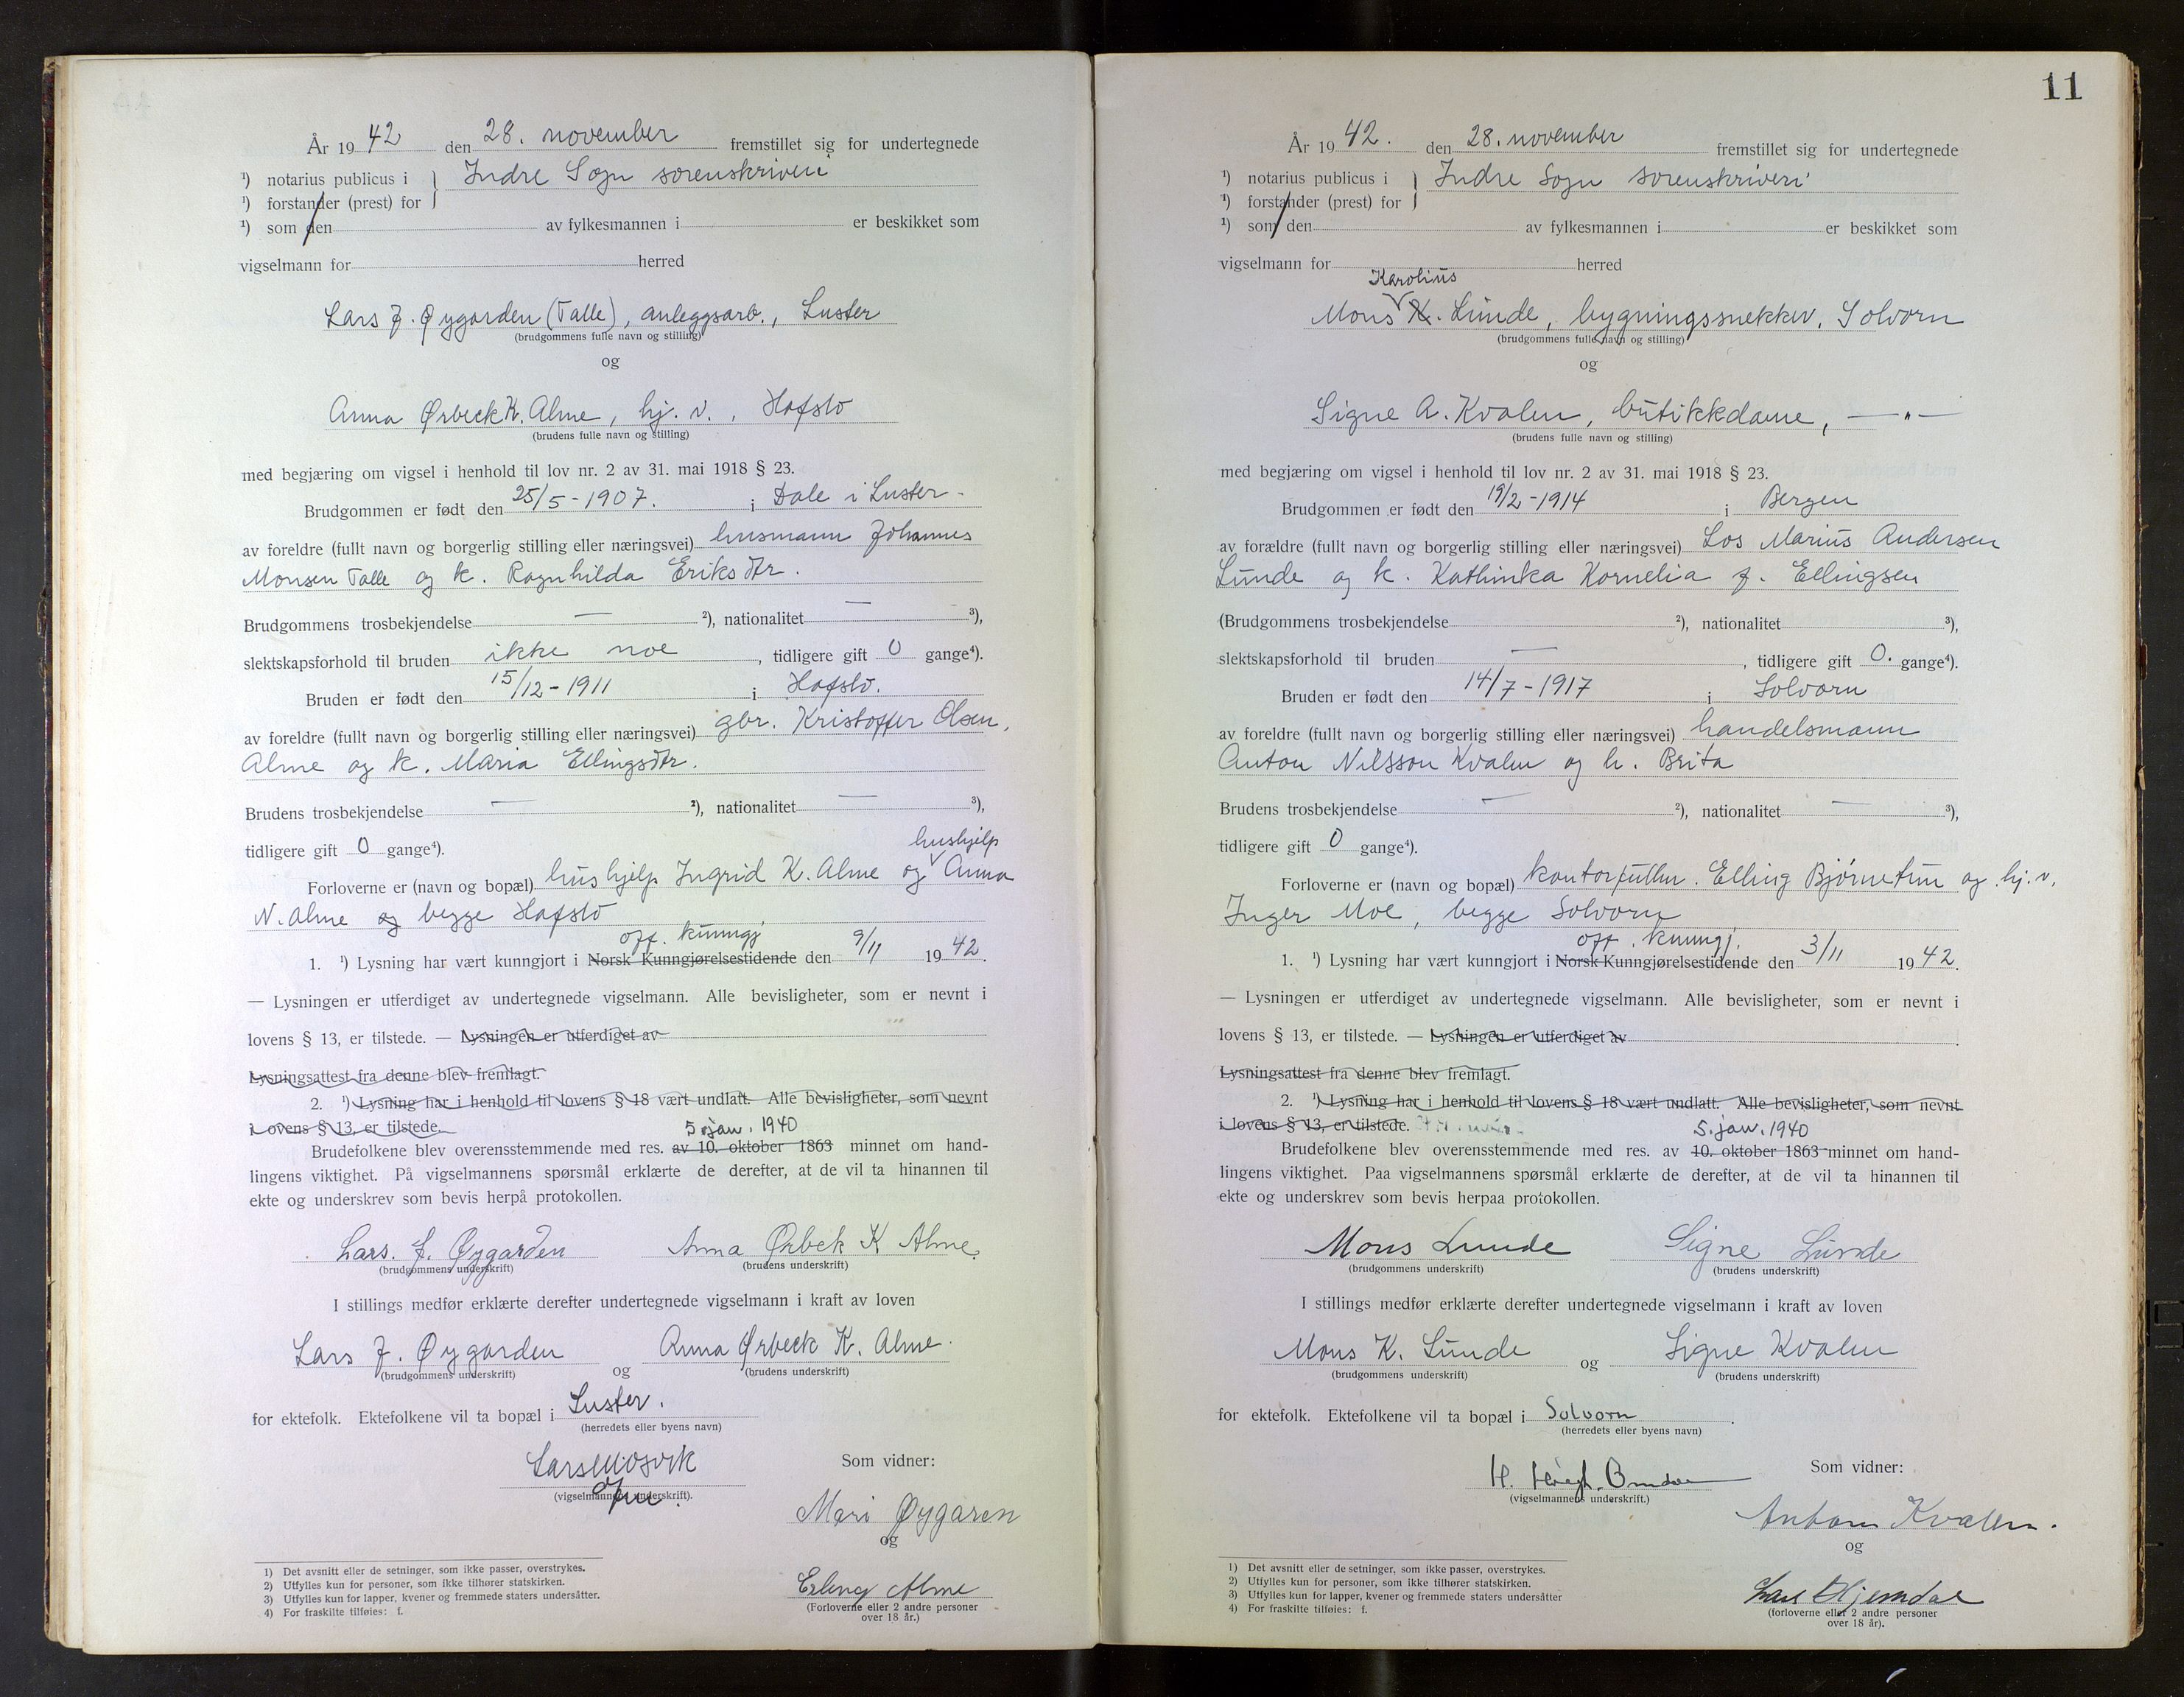 År 1942 den 28. november fremstillet sig for undertegnede
¹) notarius publicus i } Indre Sogn sorenskriveri
¹) forstander (prest) for
¹) som den av fylkesmannen i er beskikket som
vigselmann for herred
Lars J. Øygarden (Talle), anleggsarb., Luster
(brudgommens fulle navn og stilling)
og
Anna Ørbeck K. Alme, hj. v., Hafslo
(brudens fulle navn og stilling)
med begjæring om vigsel i henhold til lov nr. 2 av 31. mai 1918 § 23.
Brudgommen er født den 25/5-1907. i Dale i Luster
av foreldre (fullt navn og borgerlig stilling eller næringsvei) husmann Johannes
Monsen Talle og k. Ragnhilda Eriksdtr.
Brudgommens trosbekjendelse — ²), nationalitet — ³),
slektskapsforhold til bruden ikke noe, tidligere gift 0 gange⁴).
Bruden er født den 15/12-1911 i Hafslo.
av foreldre (fullt navn og borgerlig stilling eller næringsvei) gbr. Kristoffer Olsen,
Alme og k. Maria Ellingsdtr.
Brudens trosbekjendelse — ²), nationalitet — ³),
tidligere gift 0 gange⁴).
hushjelp
Forloverne er (navn og bopæl) hushjelp Ingrid K. Alme og Anna
N. Alme og begge Hafslo
off. kunngj
1. ¹) Lysning har vært kunngjort i Norsk Kunngjørelsestidende den 9/11 1942.
— Lysningen er utferdiget av undertegnede vigselmann. Alle bevisligheter, som er nevnt i
lovens § 13, er tilstede. — Lysningen er utferdiget av
Lysningsattest fra denne blev fremlagt.
2. ¹) Lysning har i henhold til lovens § 18 vært undlatt. Alle bevisligheter, som nevnt
i lovens § 13, er tilstede.
5. jan. 1940
Brudefolkene blev overensstemmende med res. av 10. oktober 1863 minnet om hand-
lingens viktighet. På vigselmannens spørsmål erklærte de derefter, at de vil ta hinannen til
ekte og underskrev som bevis herpå protokollen.
Lars. J. Øygarden Anna Ørbek K Alme.
(brudgommens underskrift) (brudens underskrift)
I stillings medfør erklærte derefter undertegnede vigselmann i kraft av loven
Lars J. Øygarden og Anna Ørbeck K. Alme.
(brudgommens underskrift) (brudens underskrift)
for ektefolk. Ektefolkene vil ta bopæl i Luster.
(herredets eller byens navn)
Lars Mosvik
(vigselmannens underskrift).
Som vidner:
Mari Øygaren
og
Erling Alme
(Forloverne eller 2 andre personer
over 18 år.)
1) Det avsnitt eller de setninger, som ikke passer, overstrykes.
2) Utfylles kun for personer, som ikke tilhører statskirken.
3) Utfylles kun for lapper, kvener og fremmede staters undersåtter.
4) For fraskilte tilføies: f.
11
År 1942. den 28. november fremstillet sig for undertegnede
¹) notarius publicus i } Indre Sogn sorenskriveri
¹) forstander (prest) for
¹) som den av fylkesmannen i er beskikket som
vigselmann for herred
Karolius
Mons K. Lunde, bygningssnekker, Solvorn
(brudgommens fulle navn og stilling)
og
Signe A. Kvalen, butikkdame, —"—
(brudens fulle navn og stilling)
med begjæring om vigsel i henhold til lov nr. 2 av 31. mai 1918 § 23.
Brudgommen er født den 19/2-1914 i Bergen
av forældre (fullt navn og borgerlig stilling eller næringsvei) Los Marius Andersen
Lunde og k. Kathinka Kornelia f. Ellingsen
(Brudgommens trosbekjendelse ²), nationalitet ³),
slektskapsforhold til bruden —, tidligere gift 0. gange⁴).
Bruden er født den 14/7-1917 i Solvorn
av foreldre (fullt navn og borgerlig stilling eller næringsvei) handelsmann
Anton Nilsson Kvalen og h. Brita
Brudens trosbekjendelse — ²), nationalitet — ³),
tidligere gift 0 gange⁴).
Forloverne er (navn og bopæl) Elling Bjørnetun og hj. v.
Inger Moe, begge Solvorn
off. kunngj.
1. ¹) Lysning har vært kunngjort i Norsk Kunngjørelsestidende den 3/11 1942.
— Lysningen er utferdiget av undertegnede vigselmann. Alle bevisligheter, som er nevnt i
lovens § 13, er tilstede. — Lysningen er utferdiget av
Lysningsattest fra denne blev fremlagt.
2. ¹) Lysning har i henhold til lovens § 18 vært undlatt. Alle bevisligheter, som nevnt
i lovens § 13, er tilstede.
5. jan. 1940
Brudefolkene blev overensstemmende med res. av 10. oktober 1863 minnet om hand-
lingens viktighet. Paa vigselmannens spørsmål erklærte de derefter, at de vil ta hinannen til
ekte og underskrev som bevis herpaa protokollen.
Mons Lunde Signe Lunde
(brudgommens underskrift) (brudens underskrift)
I stillings medfør erklærte derefter undertegnede vigselmann i kraft av loven
Mons K. Lunde og Signe Kvalen
(brudgommens underskrift) (brudens underskrift)
for ektefolk. Ektefolkene vil ta bopæl i Solvorn.
(herredets eller byens navn)
H.
(vigselmannens underskrift.)
Som vidner:
Anton Kvalen.
og
Hjemdal
(forloverne eller 2 andre personer
over 18 år).
1) Det avsnitt eller de setninger, som ikke passer, overstrykes.
2) Utfylles kun for personer, som ikke tilhører statskirken.
3) Utfylles kun for lapper, kvener og fremmede staters undersåtter
4) For fraskilte tilføies: f.